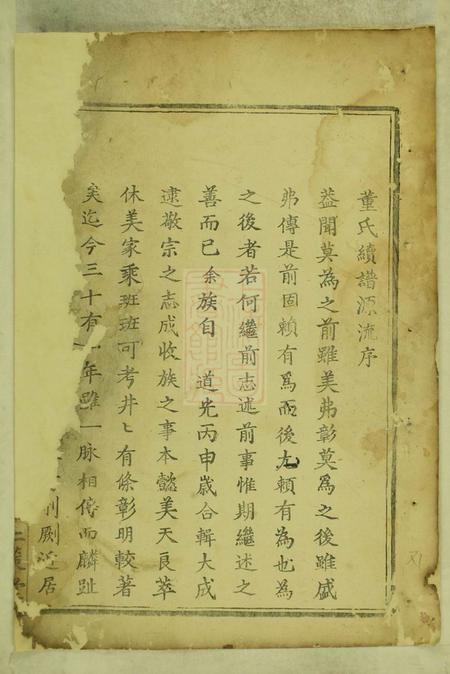 董氏續譜源流序
蓋聞莫為之前雖美弗彰莫為之後雖盛
弗傳是前固賴有爲而後尢賴有為也為
之後者若何繼前志述前事惟期繼述之
善而已余族自道光丙申歳合輯大成
逮敬宗之志成收族之事本懿美天良萃
休美家乘班班可考井〻有條彰明較著
矣迄今三十有年雖一脉相傳而麟趾
厥近居